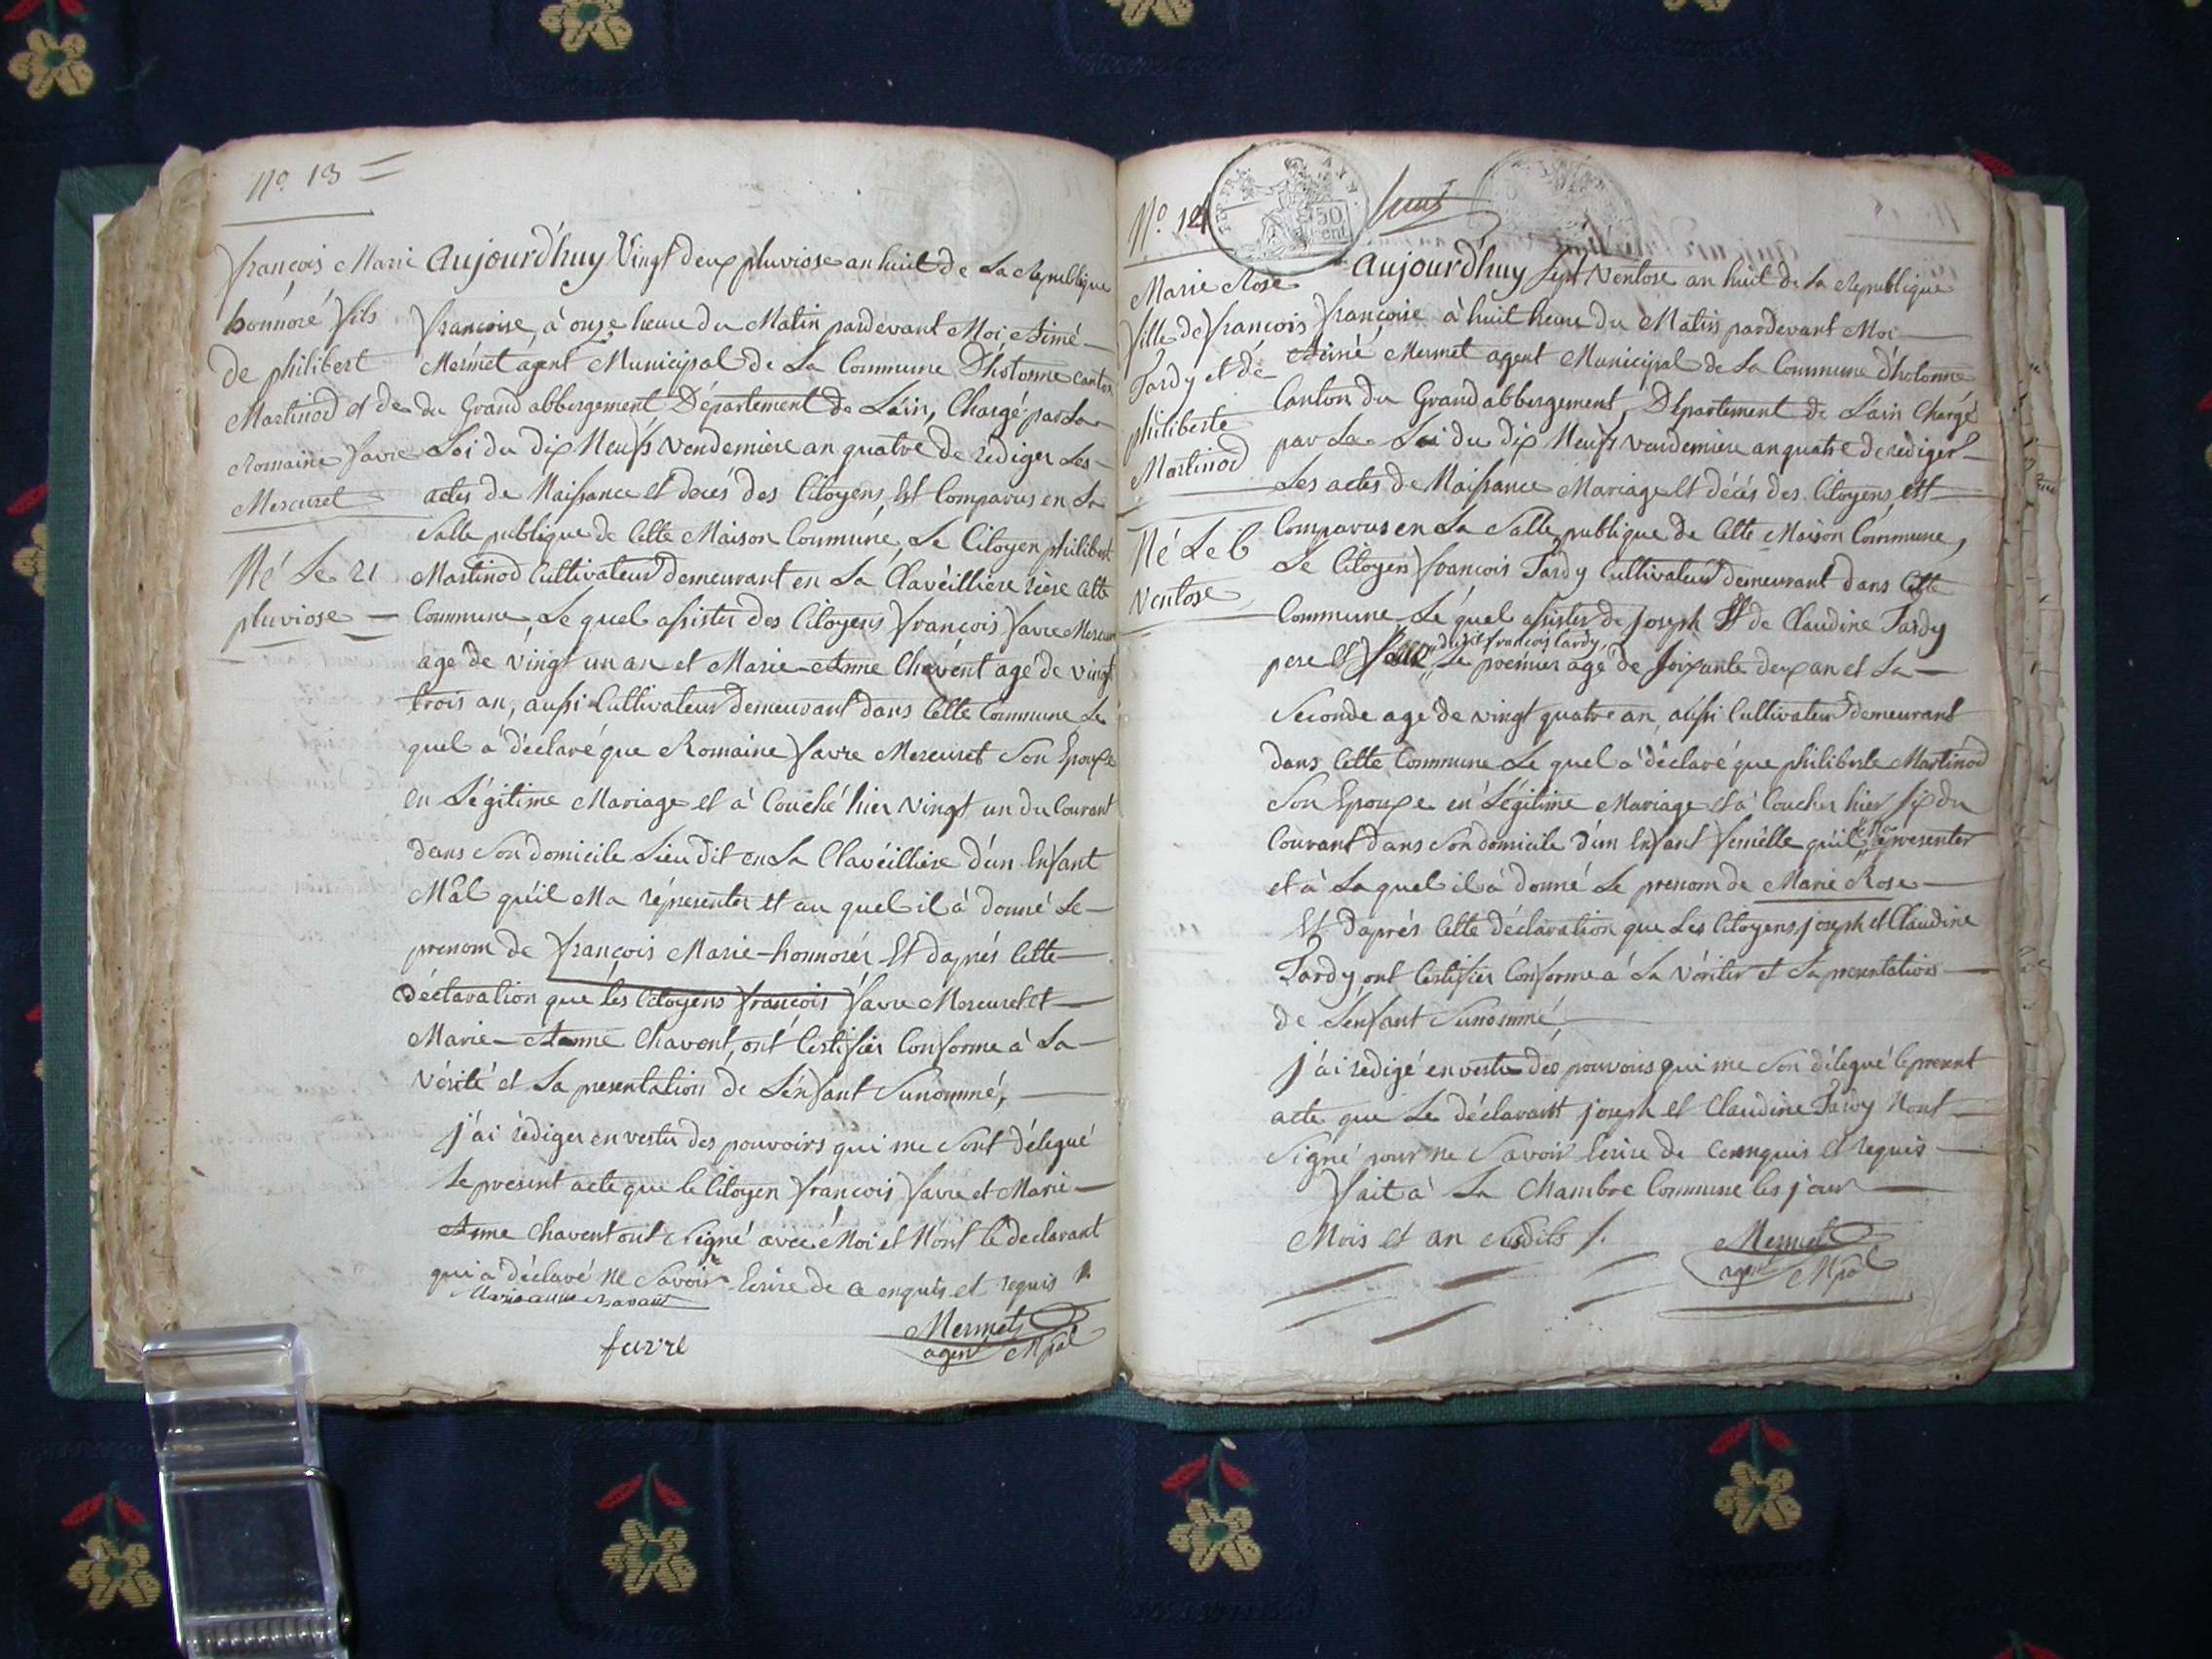 N.o 13
françois Marie
honnoré fils
de philibert
Martinod et de
Romaine favre
Mercuret
Né Le 21
pluviose
Aujourd'huy Vingt deux pluviose an huit de La Republique
françoise, à onze heure du Matin pardevant Moi, Aimé
Mermet agent Municipal de La Commune D'hotonne canton
du Grand abbergement Département de L'ain, Chargé par La
Loi du dix Neufs Vendemiere an quatre de rédiger Les
actes de Naissance et decés des Citoyens, Est Comparus en La
Salle publique de Cette Maison Commune, Le Citoyen philibert
Martinod Cultivateur demeurant en La Clavéillière rière Cette
Commune, Le quel assister des Citoyens françois favre Mercuret
age de vingt un an et Marie-Anne Chavent agé de vingt
trois an, aussi Cultivateur demeurant dans Cette Commune Le
quel a déclaré que Romaine favre Mercuret Son Epouse
en Légitime Mariage et à Couché hier Vingt un du Courant
dans Son domicile Lieu dit en La Clavéillière d'un Enfant
Mâl qu'il Ma répresenter et au quel il à donné Le
prenom de françois Marie-honnorér Et daprés Cette
déclaration que les Citoyens françois favre Mercuret et
Marie-Anne Chavent, ont Certifier Conforme à La
Vérité et La presentation de L'énfant Sunommé,
j'ai rédiger en vertu des pouvoirs qui me Sont délegué
Le present acte que le Citoyen françois favre et Marie
Anne Chavent ont Signé avec Moi et Nont le declarant
qui a déclaré Ne Savoir Ecrire de ce enquis et requis
Marie anne chavant
favre
Mermet
agent Mpal
N.o 14
REP. FRA.
50
cent
Marie Rose
fille de françois
Tardy et de
philiberte
Martinod
Né Le 6
Ventose
Aujourd'huy Sept Ventose an huit de La Republique
françoise à huit heure du Matin pardevant Moi
Aimé Mermet agent Municipal de La Commune d'hotonne
Canton du Grand abbergement, Département de L'ain Chargé
par La Loi du dix Neufs Vendemiere an quatre de rediger
Les actes de Naissance Mariage et décés des Citoyens, est
Comparus en La Salle publique de Cette Maison Commune,
Le Citoyen françois Tardy Cultivateur demeurant dans Cette
Commune Le quel assister de joseph Et de Claudine Tardy
dudit françois tardy,
pere et Le premier age de Soixante deux an et La
Seconde age de vingt quatre an, aussi Cultivateur demeurant
dans Cette Commune Le quel a déclaré que philiberte Martinod
Son Epouse en Légitime Mariage et à Coucher hier Six du
Courant dans Son domicile d'un Enfant femélle qu'il Ma representer
et à La quel il à donné Le prenom de Marie Rose
Et daprés Cette déclaration que Les Citoyens joseph et Claudine
Tardy, ont Certifier Conforme à La Vériter et La presentation
de L'enfant Sunommé,
j'ai redigé en vertu des pouvoirs qui me Son délegué le present
acte que Le déclarant joseph et Claudine Tardy Nont
Signé pour ne Savoir Ecrire de ce enquis et requis
fait à La Chambre Commune les jour
Mois et an Susdits /.
Mermet
agent Mpal